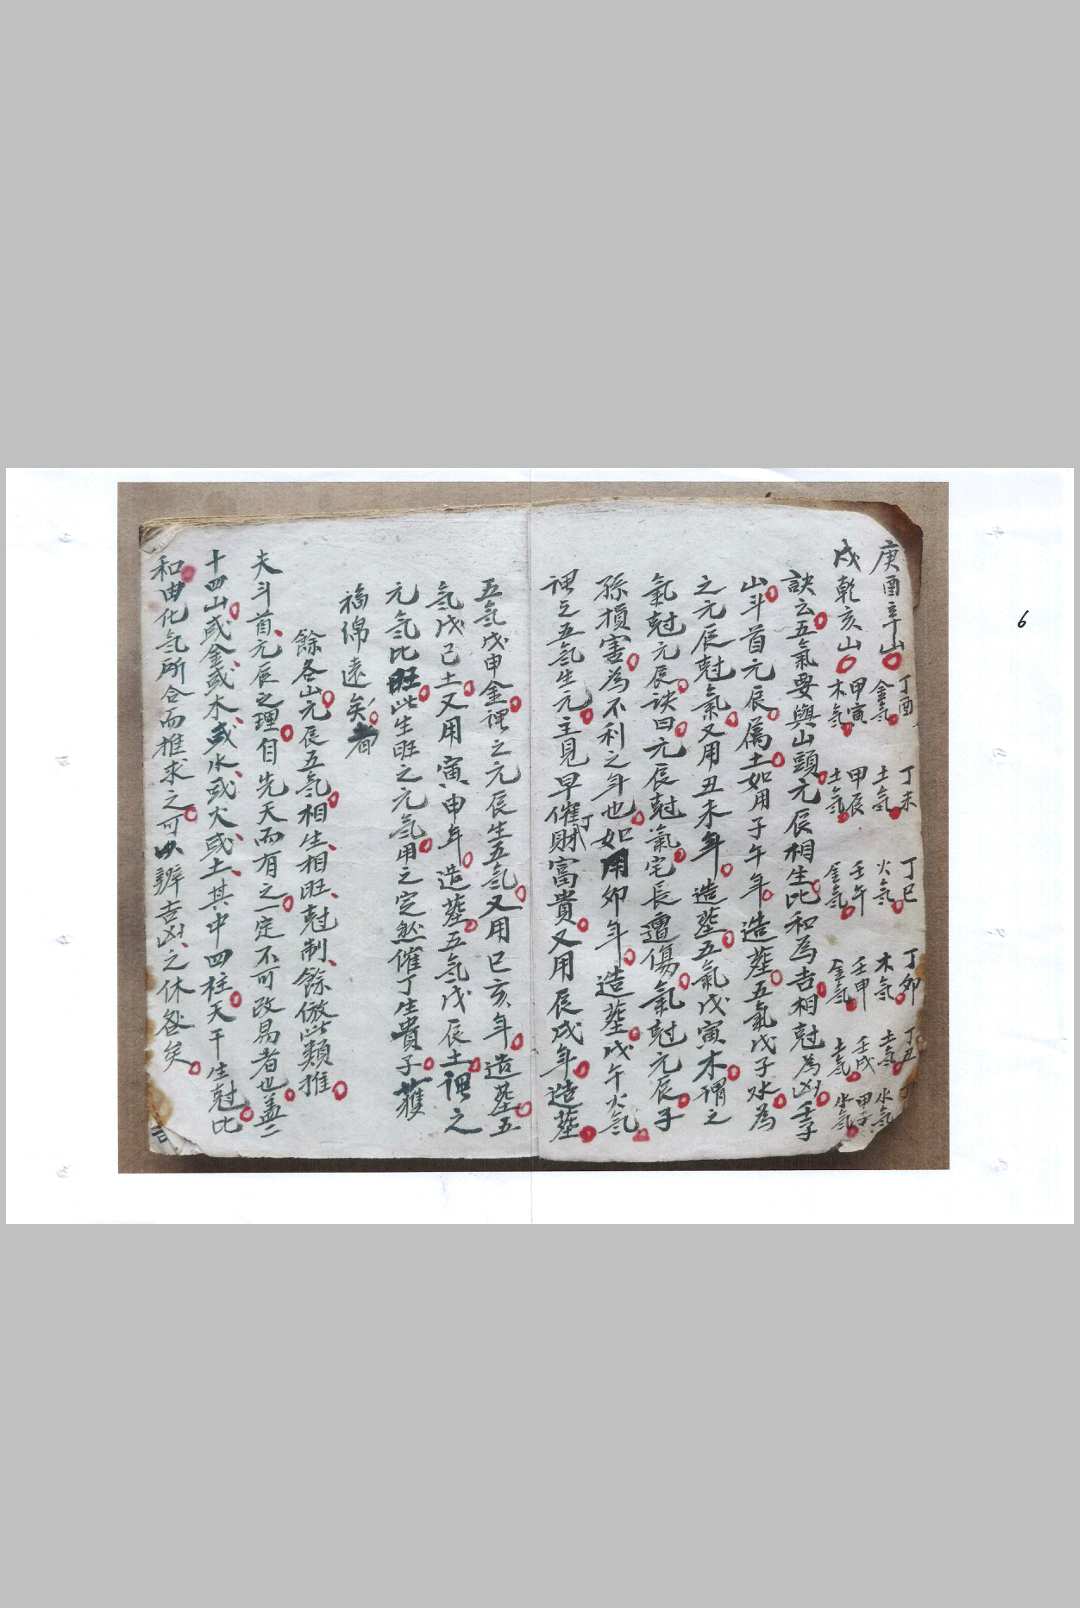 6
庚酉辛山 丁酉金氣 丁未土氣 丁巳火氣 丁卯木氣 丁丑土氣 水氣
戌乾亥山 甲寅木氣 甲辰土氣 壬午金氣 壬申金氣 壬戌土氣 甲子水氣
訣云五氣要與山頭元辰相生比和為吉相尅為凶壬子
山斗首元辰屬土如用子午年造塟五氣戊子水為
之元辰尅氣又用丑未年造塟五氣戊寅木謂之
氣尅元辰訣曰元辰尅氣宅長遭傷氣尅元辰子
孫損害為不利之年也如用卯年造塟戊午火氣
謂之五氣生元主見早催丁財富貴又用辰戌年造塟
五氣戊申金謂之元辰生五氣又用巳亥年造塟五
氣戊己土又用寅申年造塟五氣戊辰土謂之
元氣比旺此生旺之元氣用之定然催丁生貴子獲
福綿遠矣
餘各山元辰五氣相生相旺尅制餘倣此類推
夫斗首元辰之理自先天而有之一定不可改易者也蓋二
十四山或金或木或水或火或土其中四柱天干生尅比
和由化氣所合而推求之可以辨吉凶之休咎矣